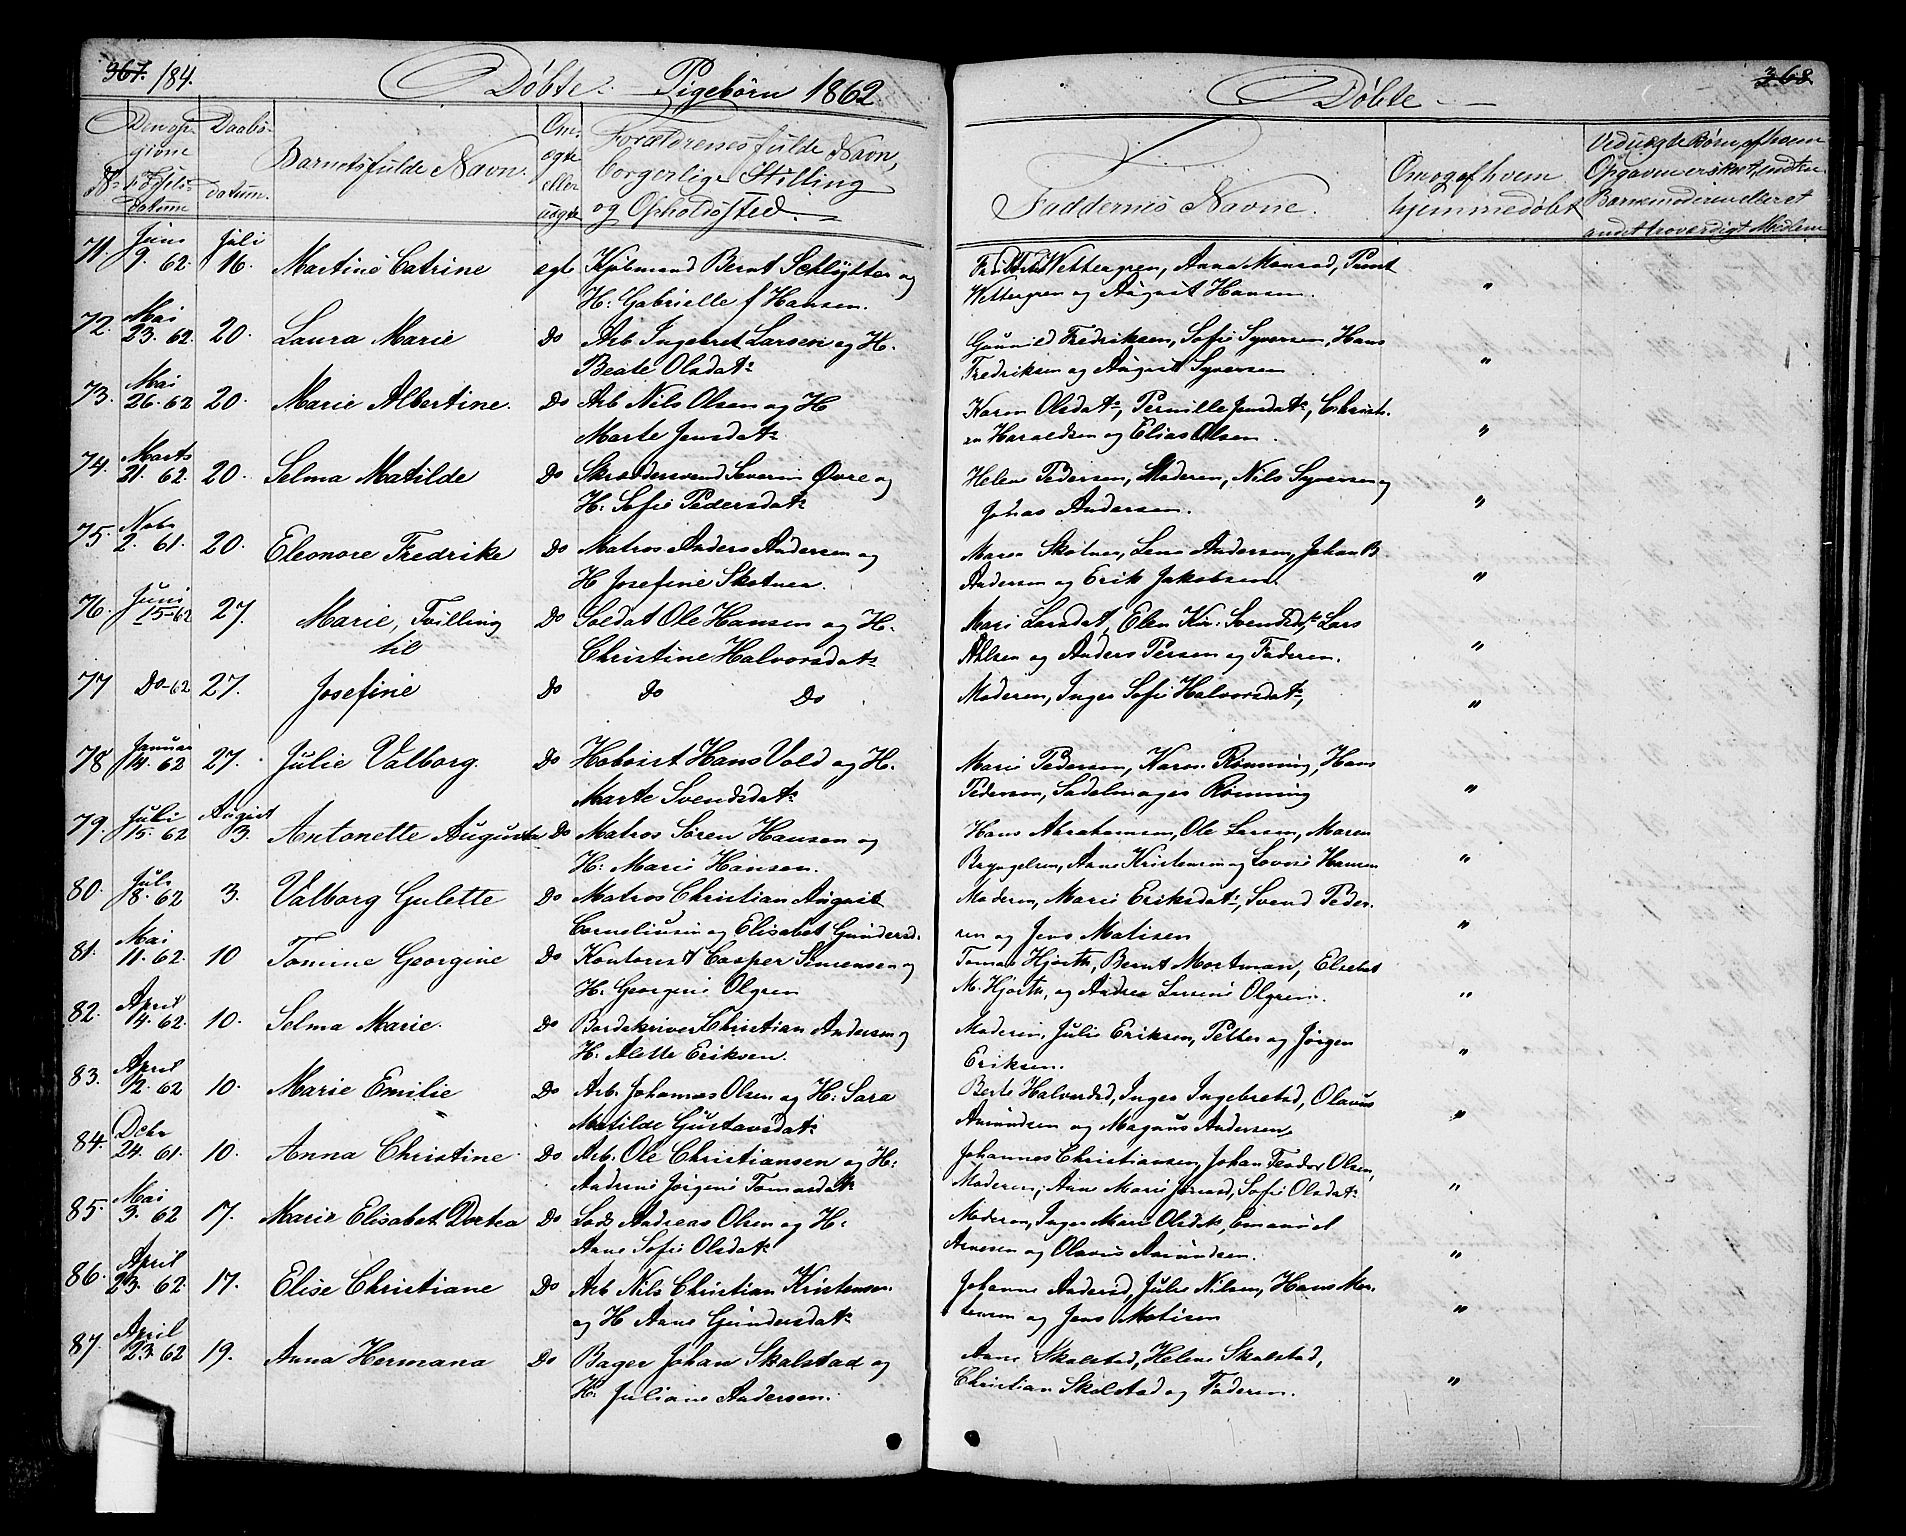 367. 184. Döbte Pigebörn 1862.
No. Den opgivne Födselsdatum
Daabsdatum.
Barnets fulde Navn.
Om ægte eller uægte
Forældrenes fulde Navn, borgerlige Stilling og Opholdssted.
71. Juni 9. 62. Juli 16. Martine Catrine egte Kjöbmand Bernt Schlytter og
H: Gabrielle f Hansen.
72. Mai 23. 62. 20. Laura Marie Do Arb Ingebret Larsen og H.
Beate Olsdatr
73. Mai 26. 62 20. Marie Albertine. Do Arb Nils Olsen og H
Marte Jensdatr
74. Marts 21. 62. 20. Selma Matilde Do Skræddersvend Severin Øvre og
H. Sofie Pedersdatr
75. Nobr 2. 61. 20. Eleonore Fredrike Do Matros Anders Andersen og
H Josefine Skotnea.
76. Juni 15-62 27. Marie, Tvilling Do Soldat Ole Hansen og H.
til Christine Halvorsdatr
77 Do-62 27. Josefine Do Do Do
78 Januar 14. 62 27. Julie Valborg. Do Hoboist Hans Vold og H.
Marte Svendsdatr
79. Juli 15. 62 August 3. Antonette Augusta Do Matros Sören Hansen og
H: Marie Hansen.
80. Juli 8. 62 3. Valborg Gulette Do Matros Christian August
Corneliusen og Elisabet Gundersd.
81. Mai 11. 62. 10 Tomine Georgine Do Kontorist Casper Simensen og
H: Georgine Olgren
82. April 14. 62. 10. Selma Marie. Do Bordskriver Christian Andersen og
H: Alette Eriksen.
83. April 12. 62 10. Marie Emilie Do Arb. Johannes Olsen og H: Sara
Matilde Gustavsdatr
84. Debr 24. 61. 10. Anna Christine Do Arb. Ole Christiansen og H:
Andrine Jörgine Tomasdatr
85. Mai 3. 62 17. Marie Elisabet Dortea Do Lods Andreas Olsen og H:
Anne Sofie Olsdatr
86. April 23. 62. 17. Elise Christiane Do Arb Nils Christian Kristensen
og H Anne Gundersdatr
87. April 23. 62 19. Anna Hermana Do Bager Johan Skalstad og
H: Juliane Andersen.
Döbte 368
Faddernes Navne.
Om og af hvem hjemmedöbt
Wettergren, Anna Monrad,
Wettergren og August Hansen. "
Gunnild Fredriksen, Sofie Syversen, Hans
Fredriksen og August Syversen "
Karen Olsdatr, Pernille Jensdatr, Christi-
an Haraldsen og Elias Olsen. "
Helene Pedersen, Moderen, Nils Syversen og
Johas Andersen. "
Maren Skotnea, Lene Andersen, Johan B.
Andersen og Erik Jakobsen. "
Mari Larsdat, Elen Kir. Svendsdtr, Lars
Ahlsen og Anders Persen og Faderen. "
Moderen, Inger Sofie Halvorsdatr, "
Marie Pedersen, Karen Rönning, Hans
Pedersen, Sadelmager Rönning "
Hans Abrahamsen, Ole Larsen, Maren
Bryngelsen, Anne Kristensen og Lovise Hansen "
Moderen, Marie Eriksdatr, Svend Peder-
sen og Jens Matisen "
Tomas Hjorth, Bernt Mortman, Elsebet
M. Hjorth, og Andrea Larsine Olgren. "
Moderen, Julie Eriksen, Petter og Jörgen
Eriksen. "
Berte Halvorsd, Inger Ingebretsd, Olavus
Amundsen og Magnus Andersen. "
Johannes Christiansen, Johan Teodor Olsen,
Moderen, Ane Marie Jensd, Sofie Olsdatr "
Moderen, Inger Marie Olsdtr, Emanuel
Arnesen og Olavus Amundsen. "
Johanne Andersd, Julie Nilsen, Hans Mor-
tensen og Jens Matisen "
Anne Skalstad, Helene Skalstad,
Christian Skalstad og Faderen. "